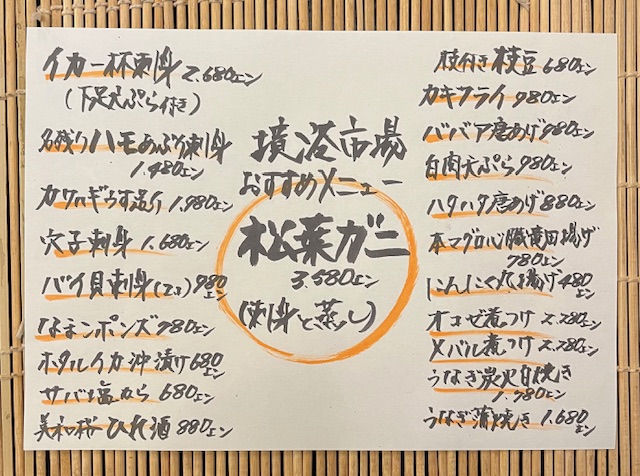 イカ一杯刺身 2.680エン
(下足天ぷら付き)
名残りハモあぶり刺身
1.480エン
カワハギうす造り 1.980エン
穴子刺身 1.680エン
バイ貝刺身(2コ) 980エン
なまこポンズ 780エン
ホタルイカ沖漬け 680エン
サバ塩から 680エン
美和桜ひれ酒 880エン
境港市場
おすすめメニュー
松葉ガニ
3.580エン
(刺身と蒸し)
枝付き枝豆 680エン
カキフライ 980エン
ババア唐あげ 980エン
白肉天ぷら 980エン
ハタハタ唐あげ 880エン
本マグロ心臓竜田揚げ
780エン
にんにく丸揚げ 480エン
オコゼ煮つけ 2.280エン
メバル煮つけ 2.280エン
うなぎ炭火白焼き
1.780エン
うなぎ蒲焼き 1.680エン